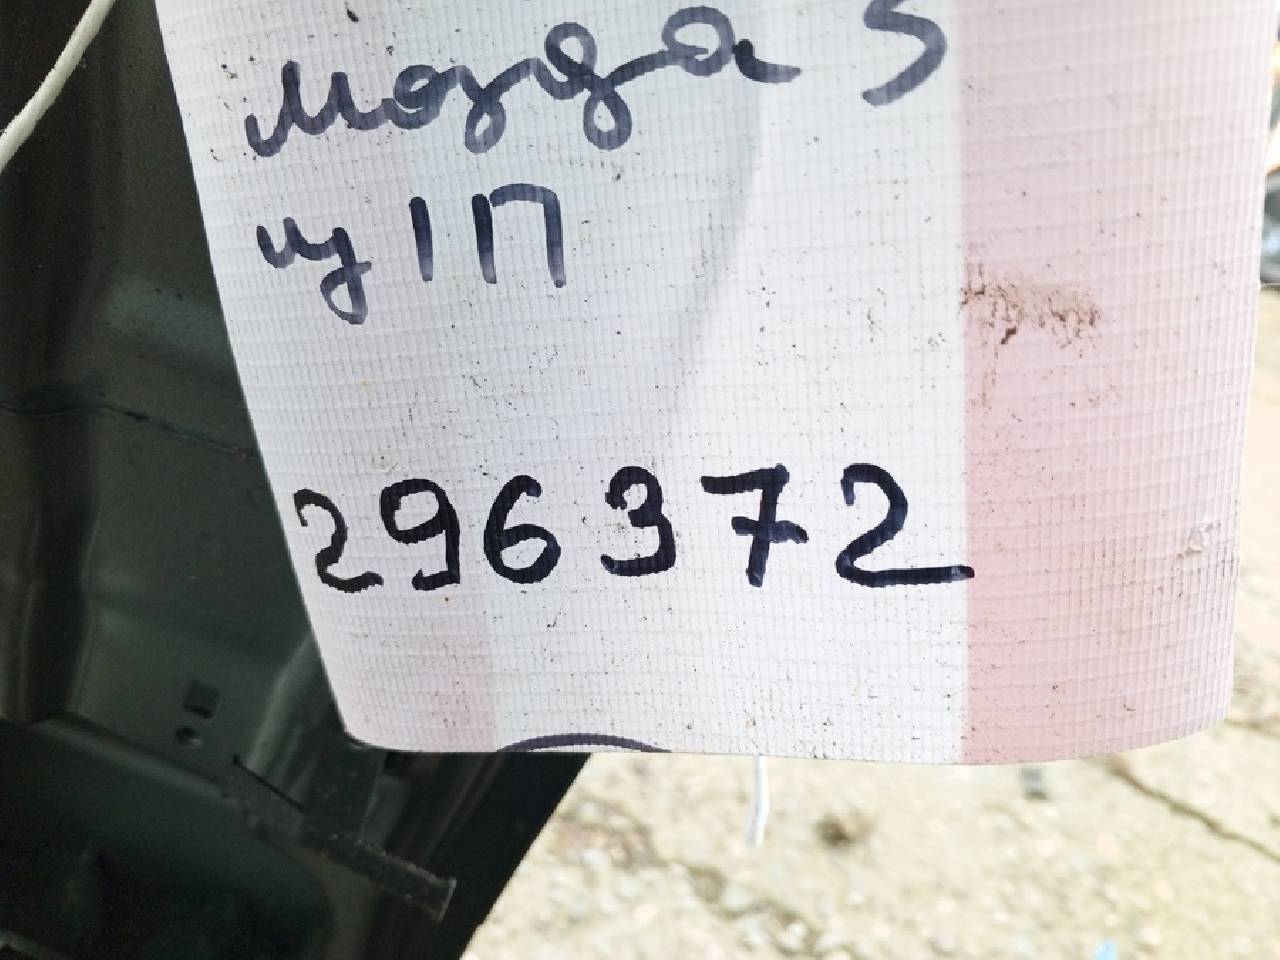 Мазда 5
из П
296372